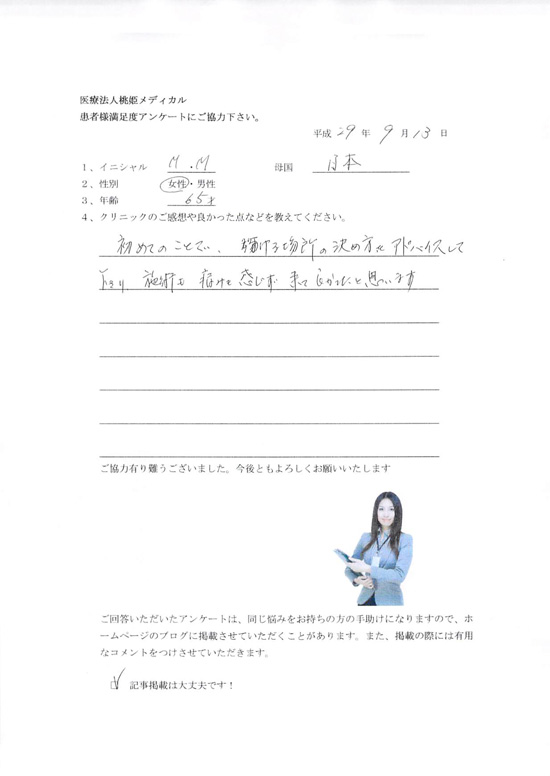 医療法人桃姫メディカル
患者様満足度アンケートにご協力下さい。
平成 29 年 9 月 13 日
1、イニシャル M.M 母国 日本
2、性別 女性・男性
3、年齢 65才
4、クリニックのご感想や良かった点などを教えてください。
初めてのことで、 場所の決め方をアドバイスして
下さり、施術も痛みを感じず 来て良かったと思います
ご協力有り難うございました。今後ともよろしくお願いいたします
ご回答いただいたアンケートは、同じ悩みをお持ちの方の手助けになりますので、ホ
ームページのブログに掲載させていただくことがあります。また、掲載の際には有用
なコメントをつけさせていただきます。
記事掲載は大丈夫です！